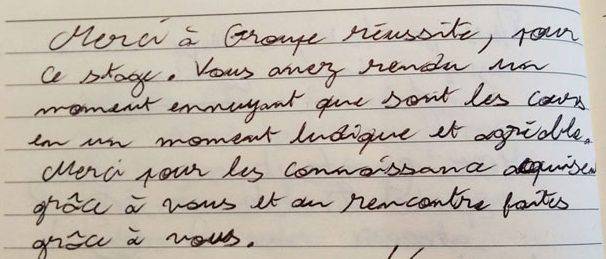 Merci à Groupe réussite, pour
ce stage. Vous avez rendu un
moment ennuyant que sont les cours
en un moment ludique et agréable.
Merci pour les connaissance acquises
grâce à vous et au rencontre faites
grâce à vous.